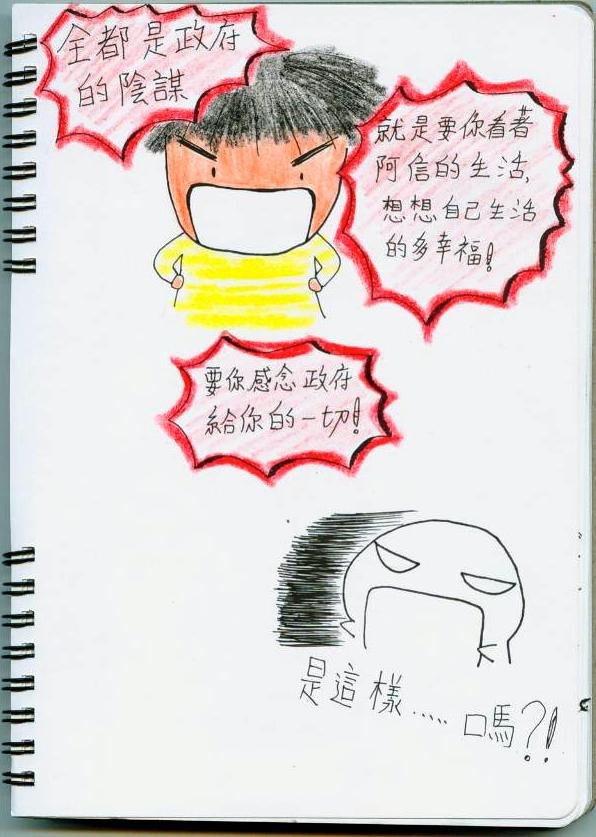 全都是政府
的陰謀
就是要你看著
阿信的生活,
想想自己生活
的多幸福!
要你感念政府
給你的一切!
是這樣.....嗎?!